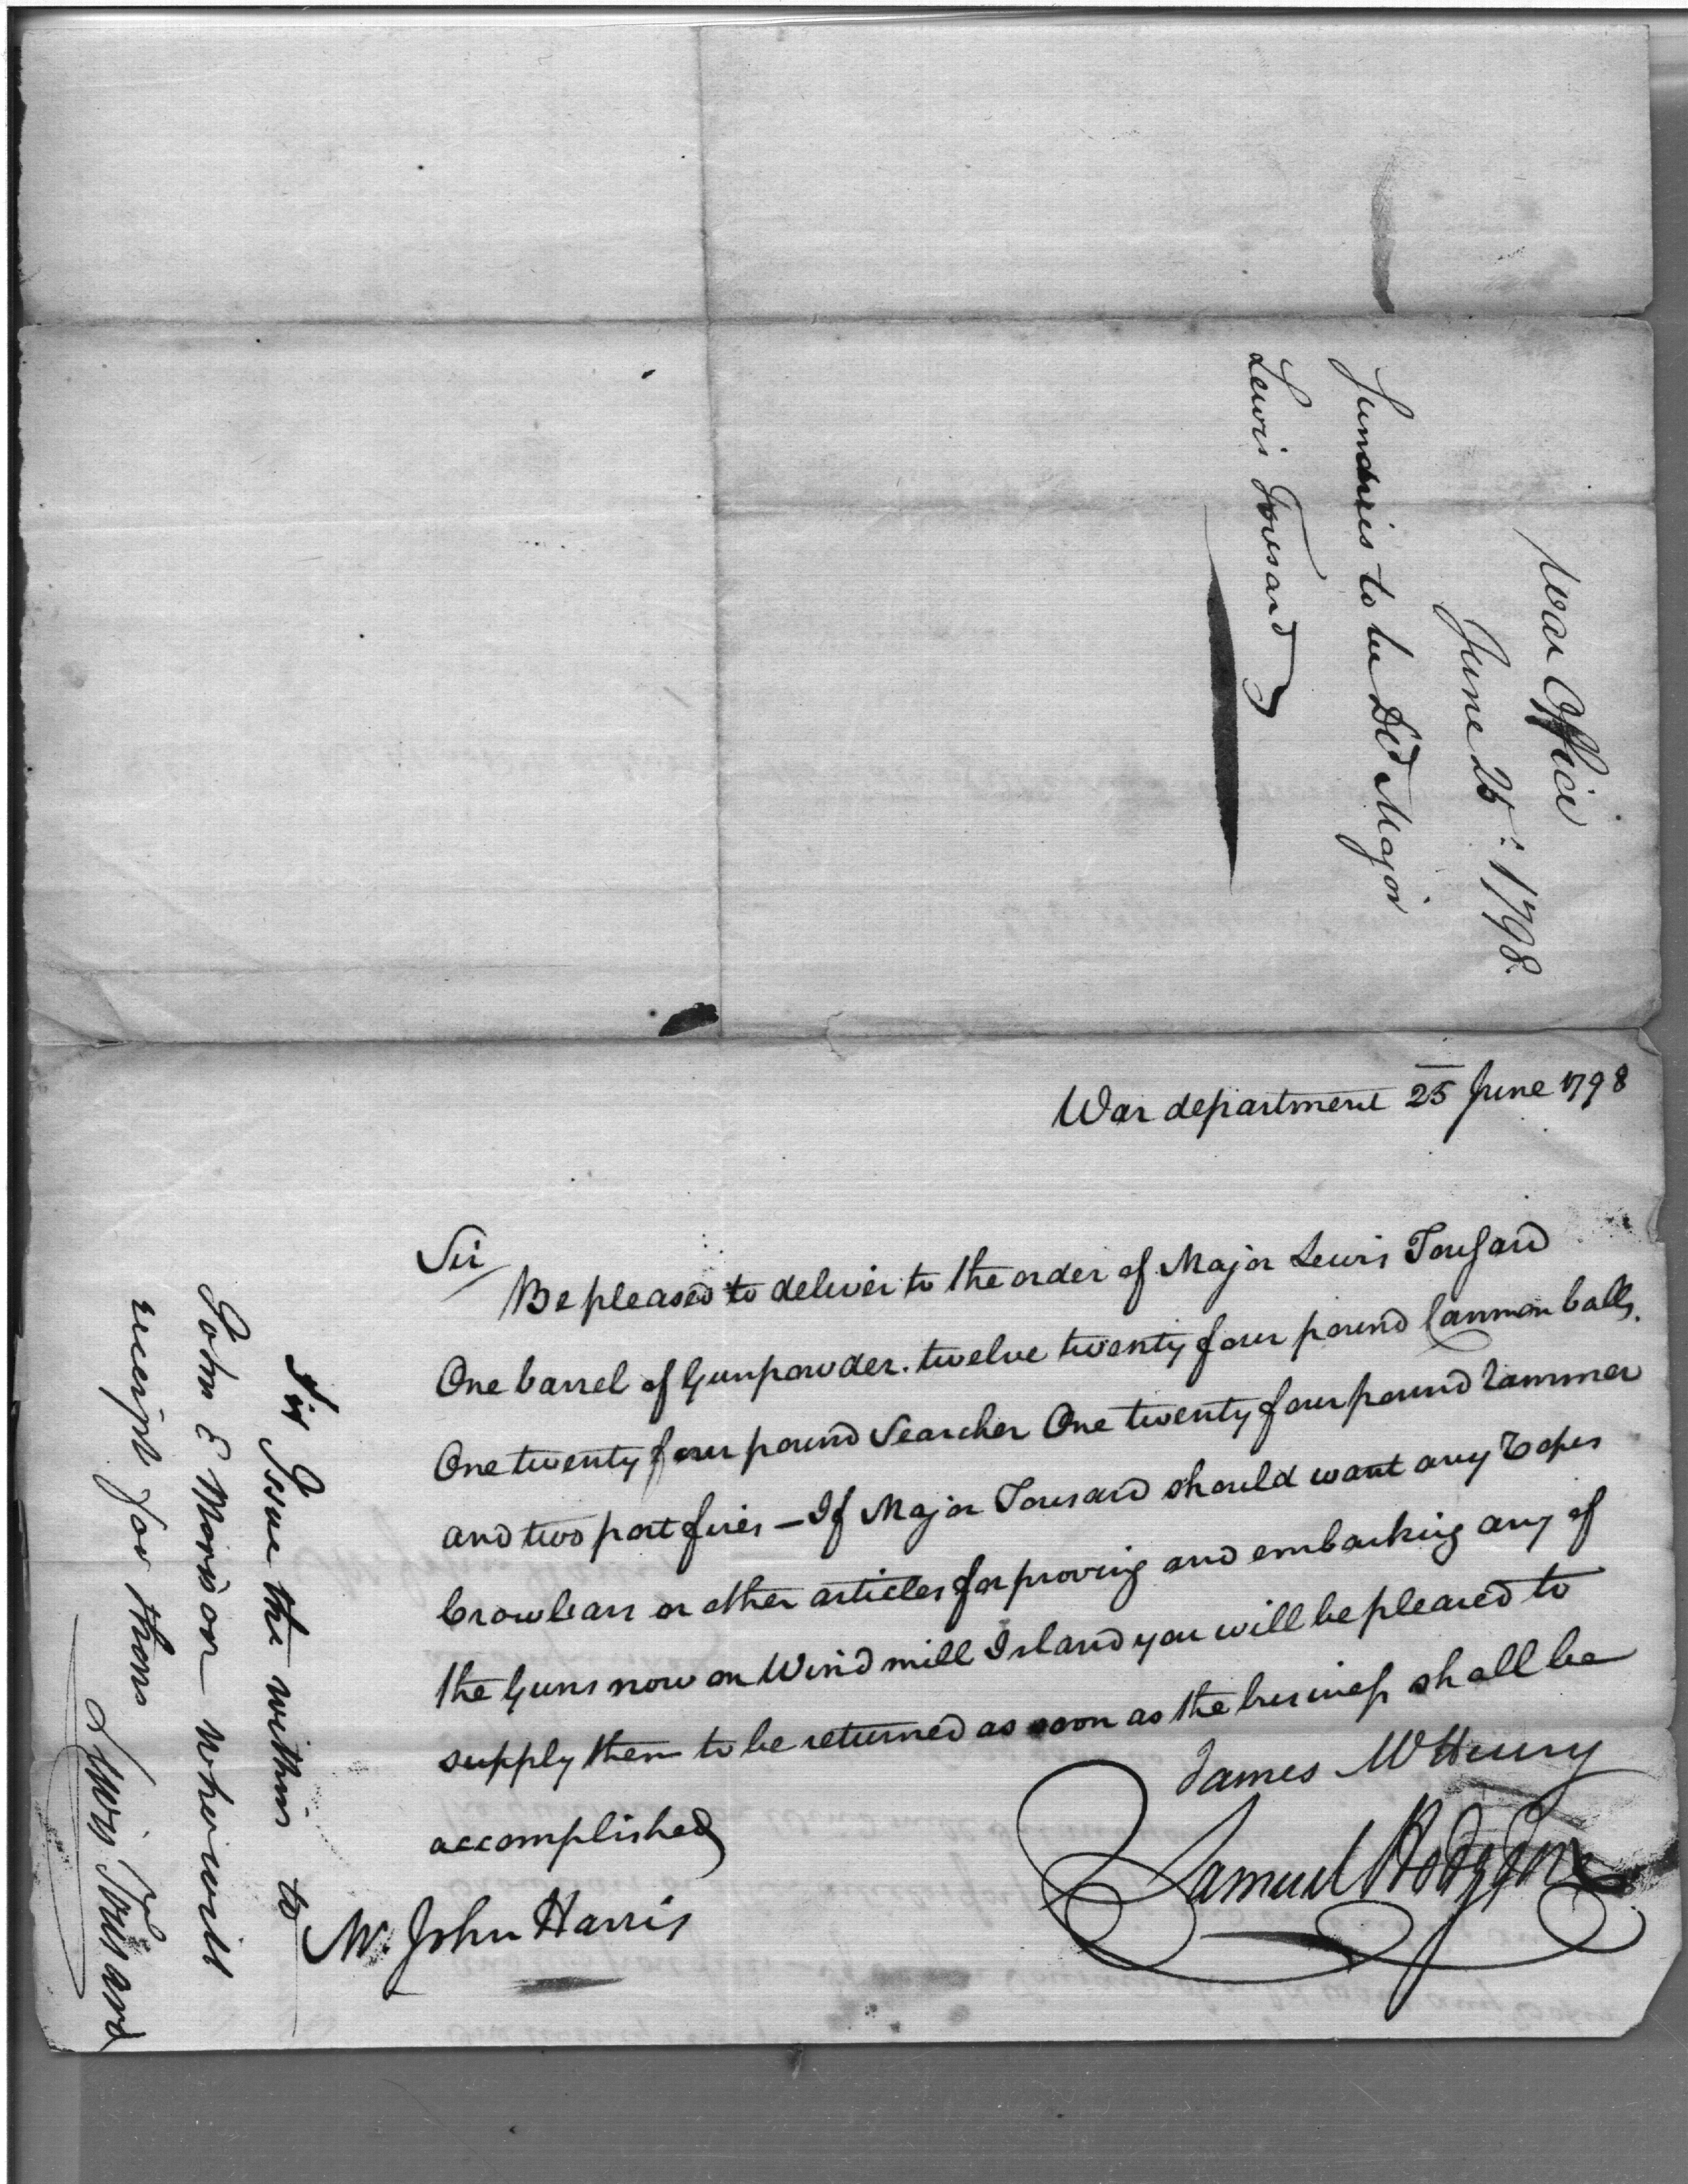 War Office
June 25: 1798.
Sundries to be Dld Major
Lewis Tousard
War department 25 June 1798
Sir
Be pleased to deliver to the order of Major Lewis Tousard
One barrel of Gunpowder. twelve twenty four pound Cannon balls.
One twenty four pound Searcher One twenty four pound rammer
and two port fires – If Major Tousard should want any Ropes
Crowbars or other articles for proving and embarking any of
the Guns now on Wind mill Island you will be pleased to
supply them to be returned as soon as the business shall be
accomplished
James McHenry
Samuel Hodgdon
Mr. John Harris
Sir Issue the within to
John E Morrison who will
receipt for them
Lewis Tousard